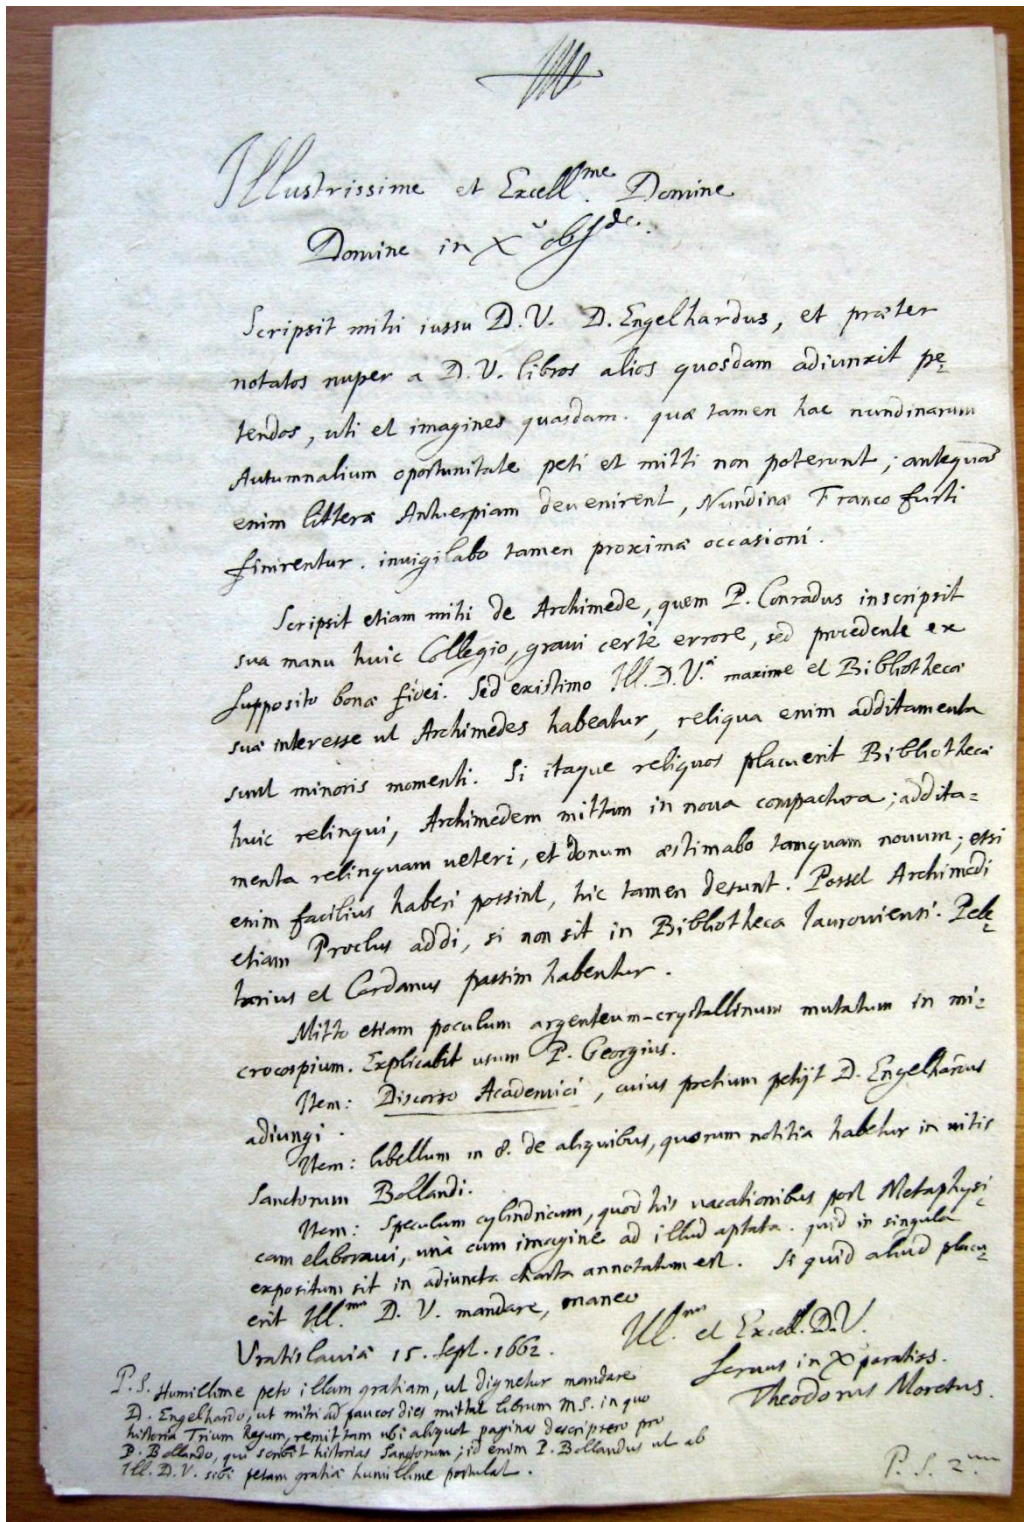 Illustrissime et Excell.me Domine
Domine in X.o obsde.
Scripsit mihi iussu D.V. D. Engelhardus, et præter
notatos nuper a D.V. libros alios quosdam adiunxit pe=
tendos, uti et imagines quasdam. quæ tamen hac nundinarum
Autumnalium oportunitate peti et mitti non poterunt; antequã
enim litteræ Antuerpiam deuenirent, Nundinæ Francofurti
finirentur. inuigilabo tamen proximæ occasioni.
Scripsit etiam mihi de Archimede, quem P. Conradus inscripsit
sua manu huic Collegio, graui certè errore, sed procedente ex
supposito bonæ fidei. Sed existimo Ill. D.V.æ maxime et Bibliothecæ
suæ interesse ut Archimedes habeatur, reliqua enim additamenta
sunt minoris momenti. Si itaque reliquos placuerit Bibliothecæ
huic relinqui, Archimedem mittam in noua compactura; addita=
menta relinquam ueteri, et donum æstimabo tamquam nouum; etsi
enim facilius haberi possint, hic tamen desunt. Posset Archimedi
etiam Proclus addi, si non sit in Bibliotheca Iauroviensi. Pele=
tarius et Cardanus passim habentur.
Mitto etiam poculum argenteum-crystallinum mutatum in mi=
crocospium. Explicabit usum P. Georgius.
Item: Discorso Academici, cuius pretium petijt D. Engelhardus
adiungi.
Item: libellum in 8. de aliquibus, quorum notitia habetur in uitis
Sanctorum Bollandi.
Item: Speculum cylindricum, quod his uacationibus post Metaphysi=
cam elaboraui, unà cum imagine ad illud aptata. quid in singula
expositum sit in adiuncta charta annotatum est. Si quid aliud placu=
erit Ill.mæ D.V. mandare, maneo
Ill.mæ et Excell. D.V.
Vratislauiæ 15. Sept. 1662.
Seruus in X paratiss.
Theodorus Moretus.
P.S. Humillime peto illam gratiam, ut dignetur mandare
D. Engelhardo, ut mihi ad paucos dies mittat librum MS. in quo
historia Trium Regum, remittam ubi aliquot paginas descripsero pro
P. Bollando, qui scribit historias Sanctorum; id enim P. Bollandus ut ab
Ill. D.V. sibi petam gratiã humillime postulat.
P.S. 2.um